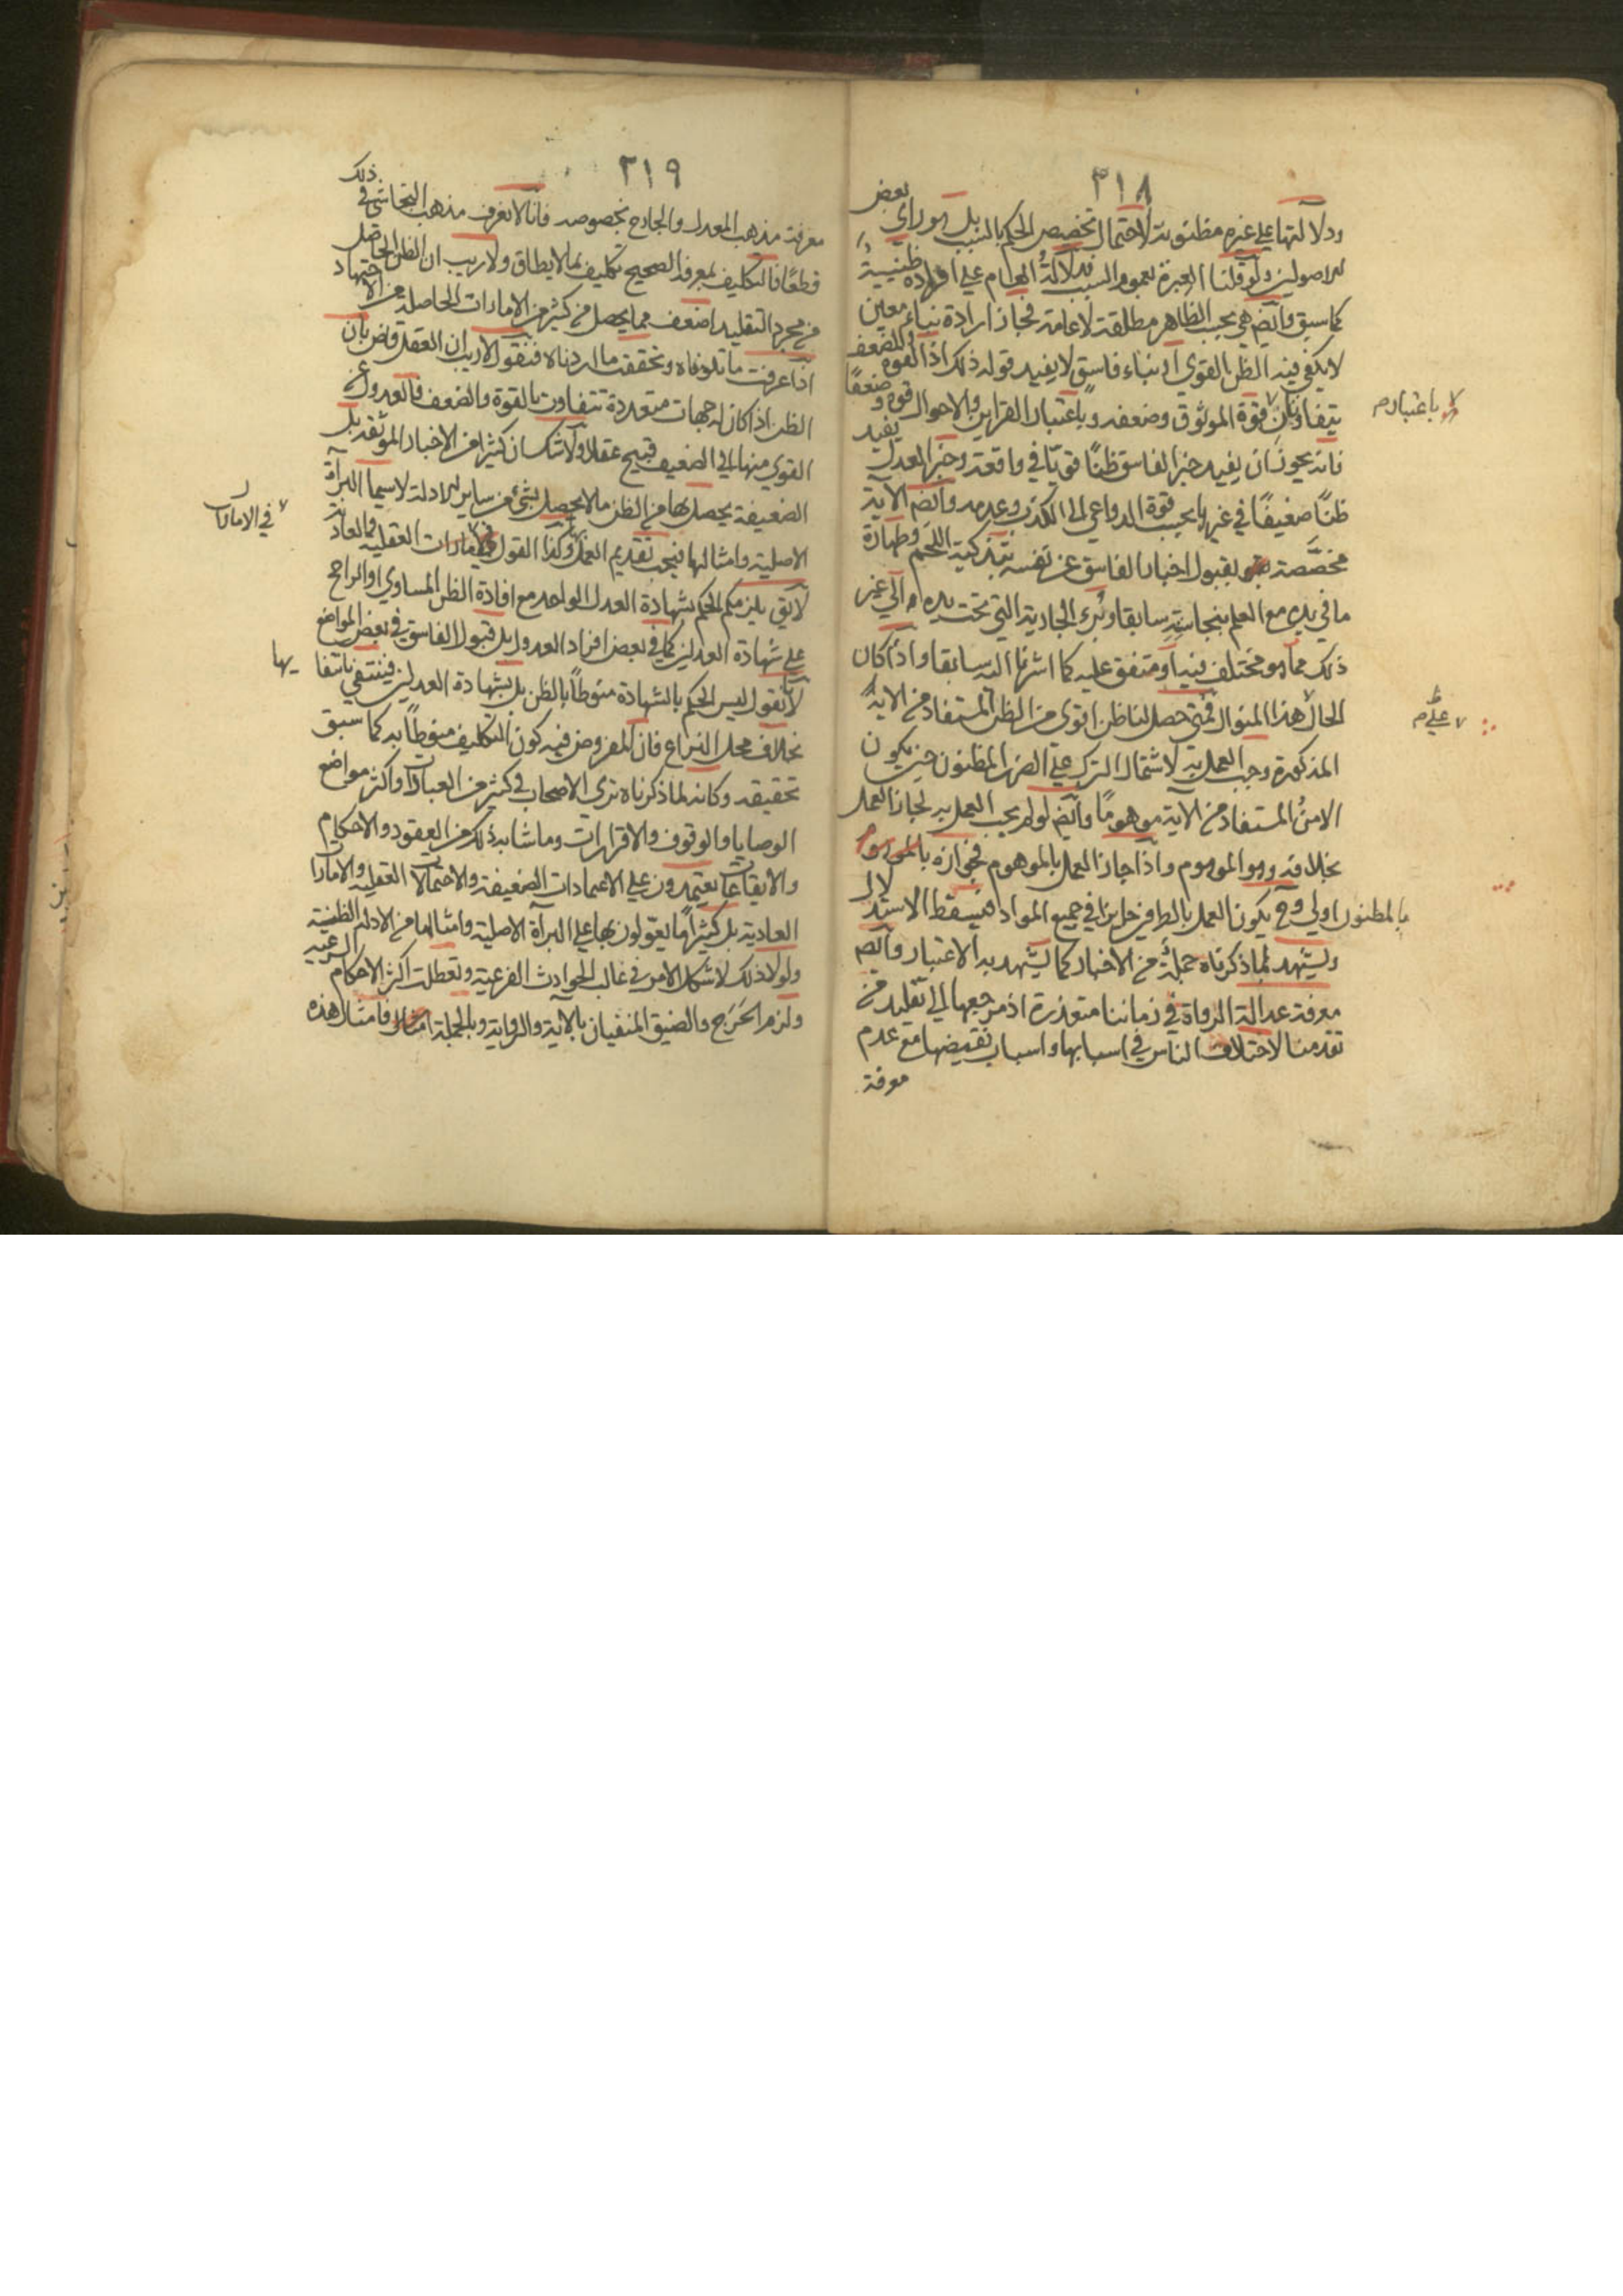 ٣١٨
ودلالتها على غيره مظنونة لاحتمال تخصيص الحكم بالسبب بل هو راي بعض
الاصولين ولو قلنا العبرة بعموم السبب فدلالة العام على افراده ظنيّة
كما سبق وايضا هي بحسب الظاهر مطلقة لا عامة فجاز ارادة نباء معين
لا يكفي فيه الظن القوي او نباء فاسق لا يفيد قوله ذلك اذ القوة والضعف
يتفاوتان قوة الموثوق وضعفه وباعتبار القراين والاحوال قوة وضعفا
لا باعتبار م
فانه يجوز ان يفيد خبر الفاسق ظنًا قويّا في واقعة وخبر العدل يفيد
ظنًا ضعيفًا في غيرها بحسب قوة الدواعي الى الكذب وعدمه وايضا الآية
مخصّصة بقبول اخبار الفاسق عن نفسه بتذكية اللحم وطهارة
ما في يده مع العلم بنجاسته سابقا وبرء الجارية التي تحت يده والى غير
ذلك مما هو مختلف فيه او متفق عليه كما اشرنا اليه سابقا واذا كان
الحال هذا المنوال فمتى حصل لنا ظن اقوى من الظن المستفاد من الاية
على م
المذكورة وجب العمل به لاشتمال الترك على الضرر المظنون حين يكون
الامن المستفاد من الاية موهومًا وايضا لو لم يجب العمل به لجاز العمل
بخلافه وهو الموهوم واذا جاز العمل بالموهوم فجوازه بالموهوم
بالمظنون اولى وح يكون العمل بالطرفين جايزا في جميع المواد فيسقط الاستدلال
ويشهد لما ذكرناه جملة من الاخبار كما يشهد به الاعتبار وايضا
معرفة عدالة الرواة في زماننا متعذرة اذ مرجعها الى تقليد من
تقدمنا لاختلاف الناس في اسبابها واسباب نقيضها مع عدم
معرفة
٣١٩
معرفة مذهب المعدل والجارح بخصوصه فانا لا نعرف مذهب النجاشي في ذلك
قطعًا فالتكليف بمعرفة الصحيح تكليف بما لا يطاق ولا ريب ان الظن الحاصل
من مجرد التقليد اضعف مما يحصل من كثير من الامارات الحاصلة من الاجتهاد
اذا عرفت ما تلوناه وتحققت ما اردناه فنقول لا ريب ان العقل قاض بان
الظن اذا كان له جهات متعددة تتفاوت بالقوة والضعف فالعدول عن
القوي منها الى الضعيف قبيح عقلا ولا شك ان كثيرا من الاخبار الموثقة بل
الضعيفة يحصل بها من الظن ما لا يحصل بشيء من ساير الادلة لا سيما البرأة
الاصلية وامثالها فيجب تقديم العمل بها وكذا القول في الامارات العقلية والعادية
في الامارات
لا يق يلزمكم الحكم بشهادة العدل الواحد مع افادة الظن المساوي او الراجح
على شهادة العدلين كما في بعض افراد العدول بل قبول الفاسق في بعض المواضع
لانا نقول ليس الحكم بالشهادة منوطًا بالظن بل بشهادة العدلين فينتفي بانتفا
يها
بخلاف محل النزاع فان المفروض فيه كون التكليف منوطًا به كما سبق
تحقيقه وكانه لما ذكرناه نرى الاصحاب في كثير من العبادات واكثر مواضع
الوصايا والوقوف والاقرارات وما شابه ذلك من العقود والاحكام
والايقاعات يعتمدون على الاعتمادات الضعيفة والاحتمالات العقلية والامارات
العادية بل كثيرا ما يعوّلون بها على البرأة الاصلية وامثالها من الادلة الظنية
ولولا ذلك لاشكل الامر في غالب الحوادث الفرعية ولتعطلت اكثر الاحكام الشرعية
ولزم الحَرَج والضيق المنفيان بالآية والرواية وبالجملة فامثال هذه